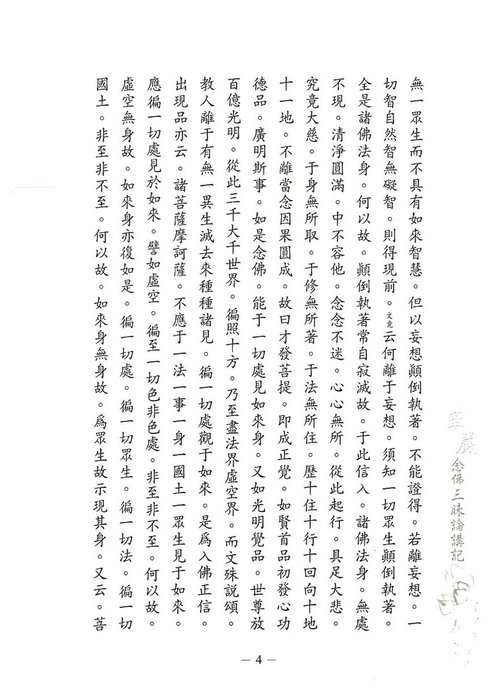 華嚴念佛三昧論講記
無一眾生而不具有如來智慧。但以妄想顛倒執著。不能證得。若離妄想。一
切智自然智無礙智。則得現前。文竟云何離于妄想。須知一切眾生顛倒執著。
全是諸佛法身。何以故。顛倒執著常自寂滅故。于此信入。諸佛法身。無處
不現。清淨圓滿。中不容他。念念不迷。心心無所。從此起行。具足大悲。
究竟大慈。于身無所取。于修無所著。于法無所住。歷十住十行十回向十地
十一地。不離當念因果圓成。故曰才發菩提。即成正覺。如賢首品初發心功
德品。廣明斯事。如是念佛。能于一切處見如來身。又如光明覺品。世尊放
百億光明。從此三千大千世界。徧照十方。乃至盡法界虛空界。而文殊說頌。
教人離于有無一異生滅去來種種諸見。徧一切處觀于如來。是為入佛正信。
出現品亦云。諸菩薩摩訶薩。不應于一法一事一身一國土一眾生見于如來。
應徧一切處見於如來。譬如虛空。徧至一切色非色處。非至非不至。何以故。
虛空無身故。如來身亦復如是。徧一切處。徧一切眾生。徧一切法。徧一切
國土。非至非不至。何以故。如來身無身故。為眾生故示現其身。又云。菩
— 4 —